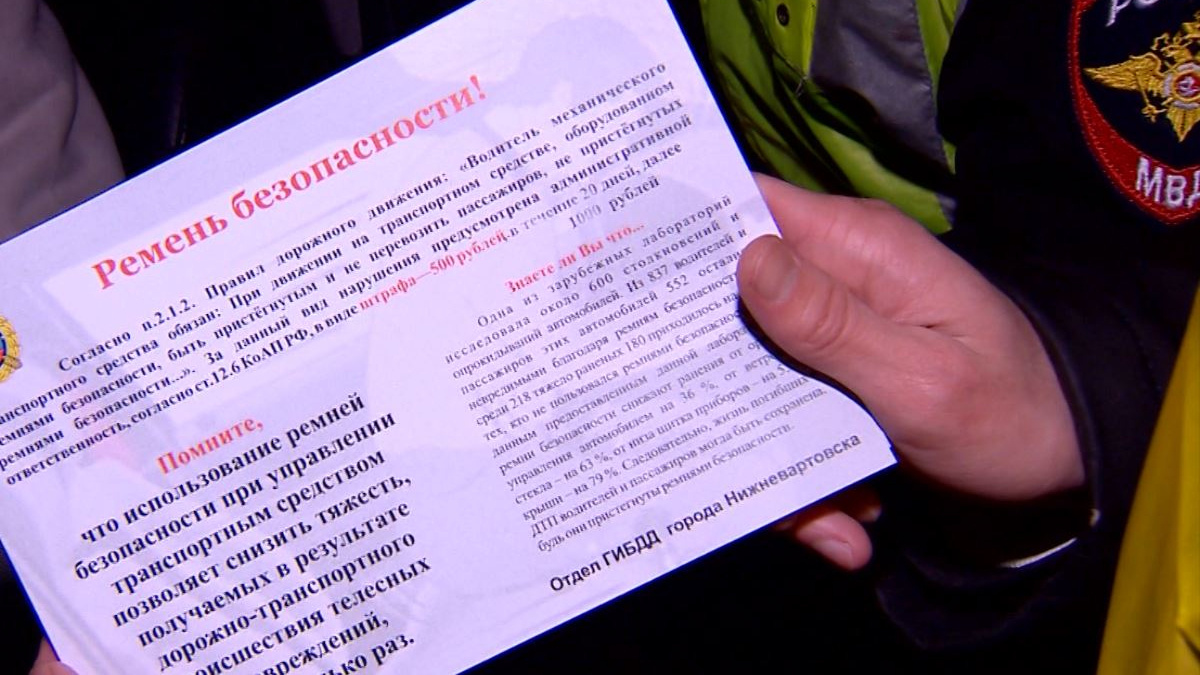 Ремень безопасности!
Согласно п.2.1.2. Правил дорожного движения: «Водитель механического
анспортного средства обязан: При движении на транспортном средстве, оборудованном
емнями безопасности, быть пристёгнутым и не перевозить пассажиров, не пристёгнутых
ремнями безопасности...». За данный вид нарушения предусмотрена административной
ответственность, согласно ст.12.6 КоАП РФ, в виде штрафа—500 рублей, в течение 20 дней, далее
1000 рублей
Помните,
что использование ремней
безопасности при управлении
транспортным средством
позволяет снизить тяжесть,
получаемых в результате
дорожно-транспортного
оисшествия телесных
вреждений,
ько раз.
Знаете ли Вы что...
Одна из зарубежных лабораторий
исследовала около 600 столкновений и
опрокидываний автомобилей. Из 837 водителей и
пассажиров этих автомобилей 552 остали
невредимыми благодаря ремням безопасност
среди 218 тяжело раненых 180 приходилось на
тех, кто не пользовался ремнями безопасно
данным, предоставленным данной лабора
ремни безопасности снижают ранения от
управления автомобилем на 36 %, от ветр
стекла – на 63 %, от низа щитка приборов – на
крыши – на 79 %. Следовательно, жизнь погибших
ДТП водителей и пассажиров могла быть сохранена,
будь они пристегнуты ремнями безопасности.
Отдел ГИБДД города Нижневартовска
МВД